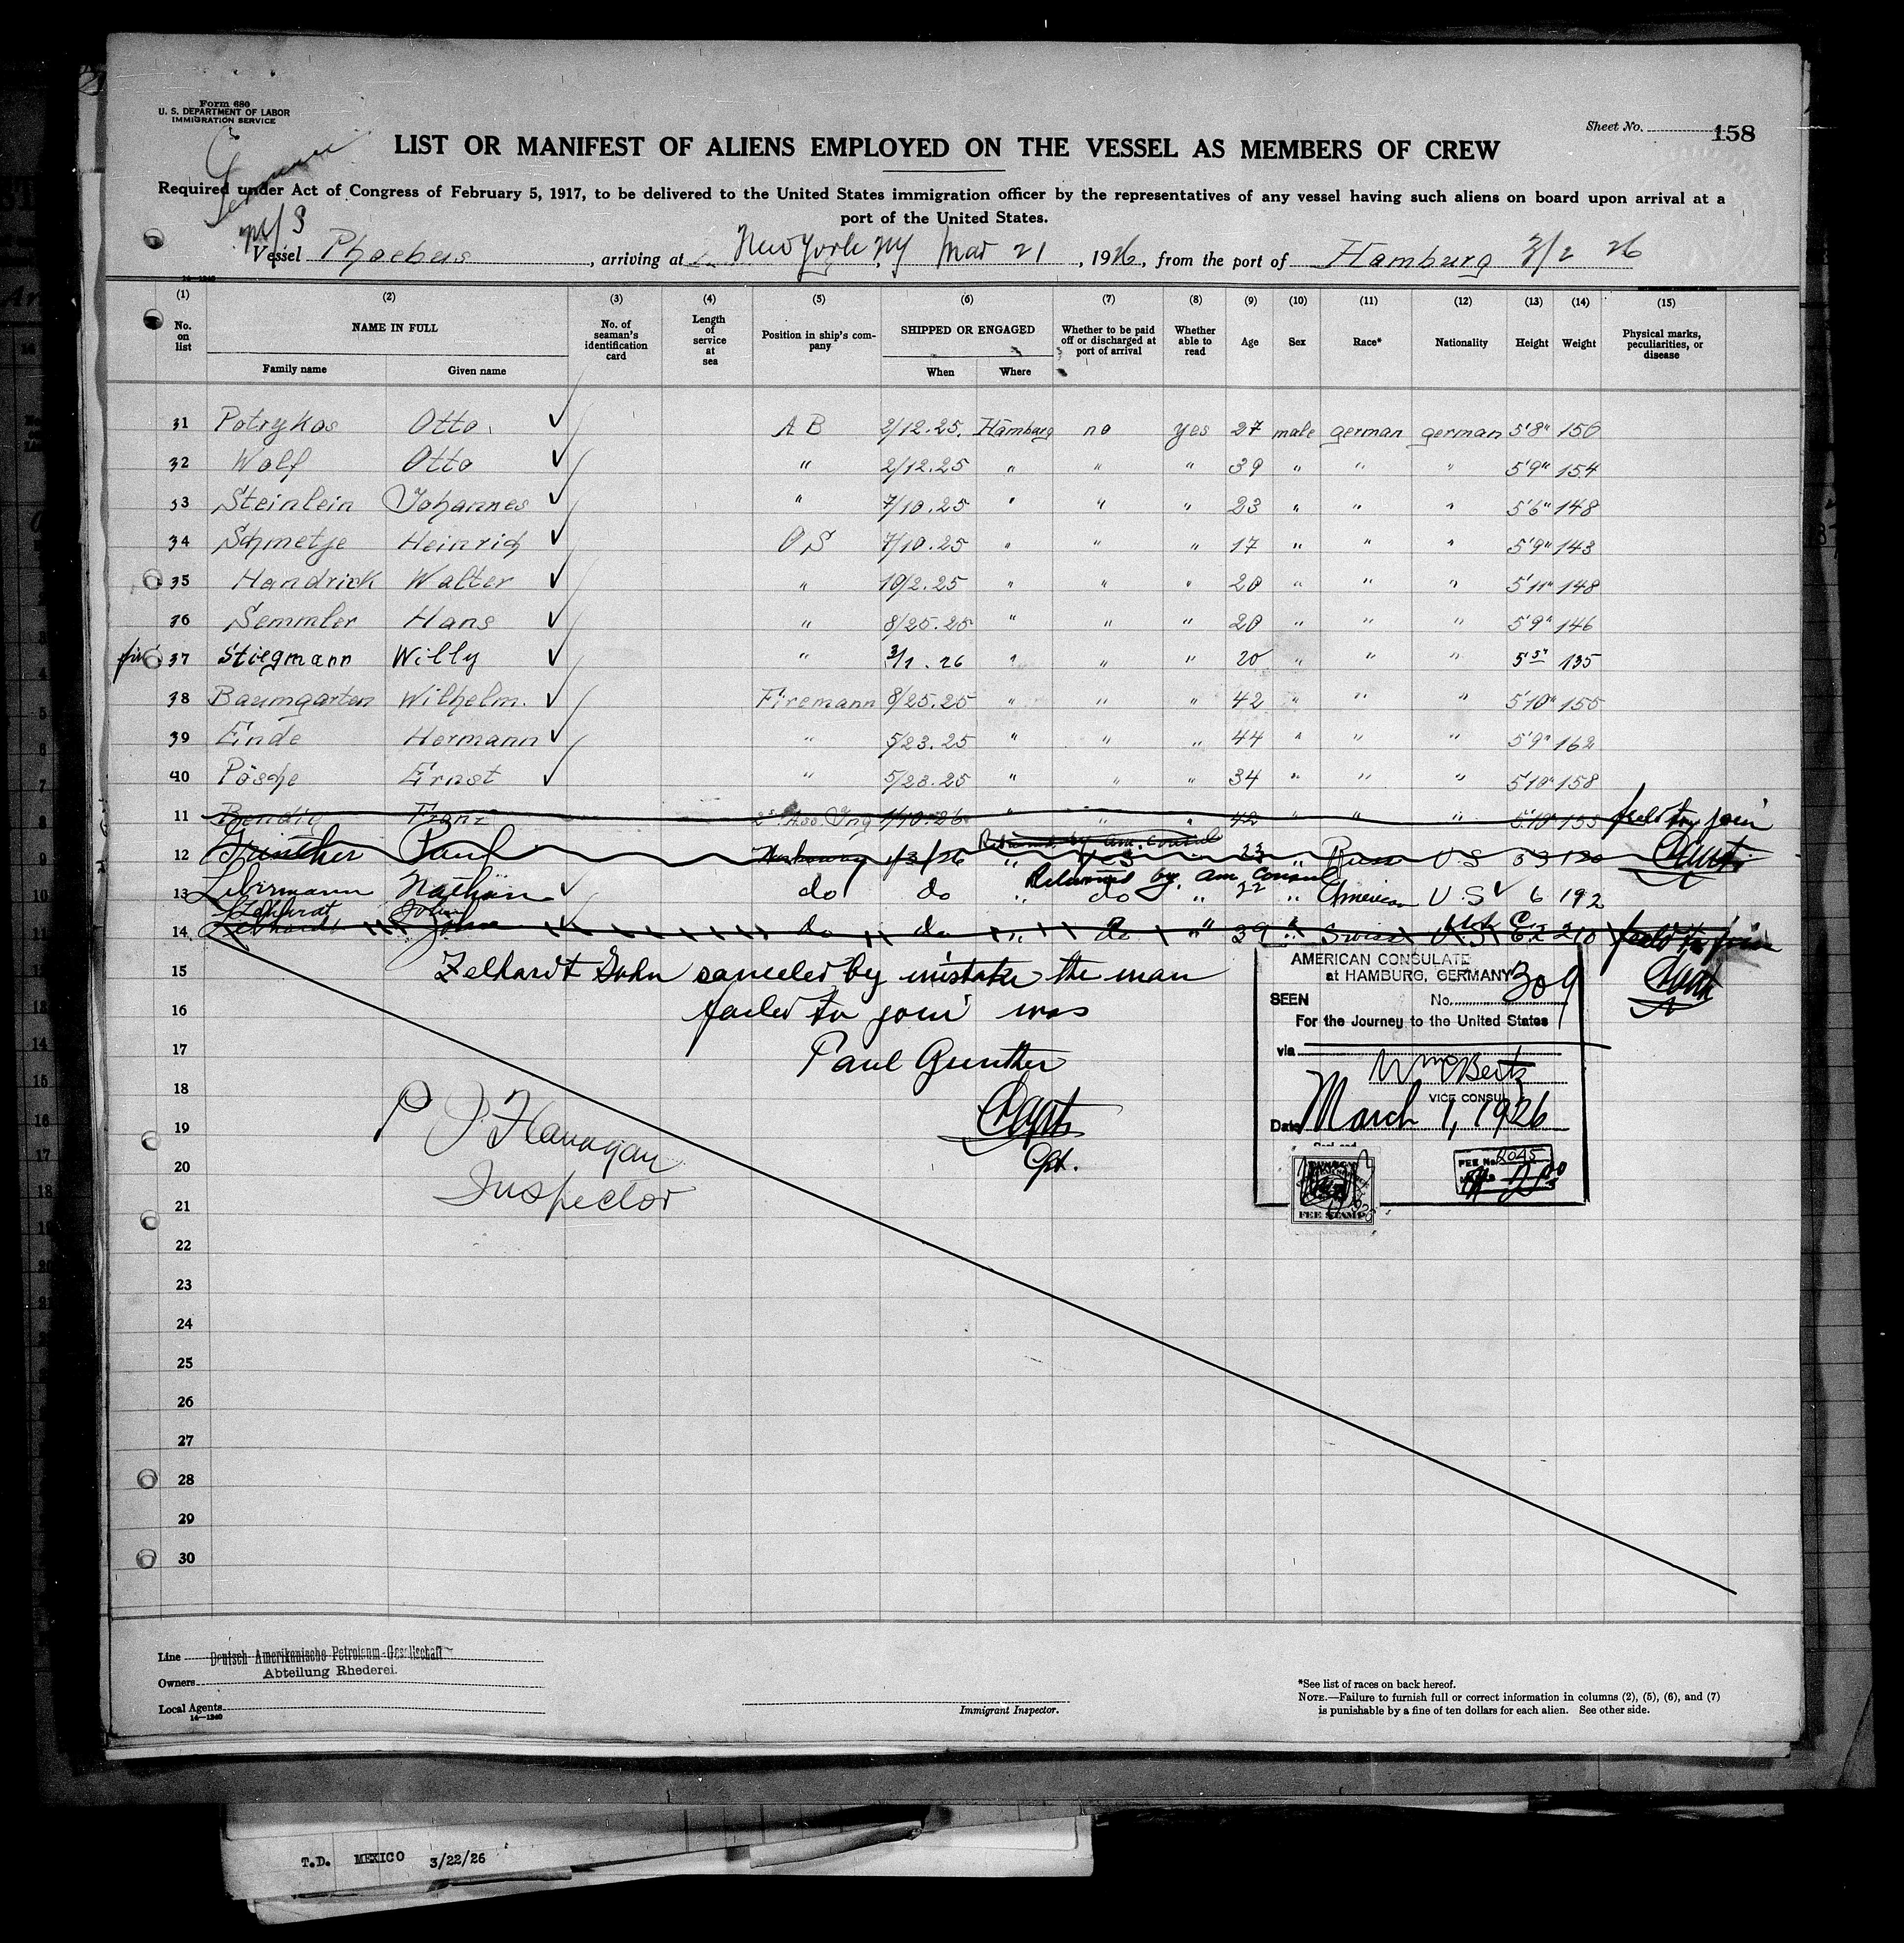 Form 680
U. S. DEPARTMENT OF LABOR
IMMIGRATION SERVICE
Sheet No. 158
LIST OR MANIFEST OF ALIENS EMPLOYED ON THE VESSEL AS MEMBERS OF CREW
Required under Act of Congress of February 5, 1917, to be delivered to the United States immigration officer by the representatives of any vessel having such aliens on board upon arrival at a
port of the United States.
M/S
Vessel Phoebus, arriving at New York, NY Mar 21, 1926, from the port of Hamburg 3/2 26
14-1240
(1) (2) (3) (4) (5) (6) (7) (8) (9) (10) (11) (12) (13) (14) (15)
No. on list NAME IN FULL No. of seaman's identification card Length of service at sea Position in ship's company SHIPPED OR ENGAGED Whether to be paid off or discharged at port of arrival Whether able to read Age Sex Race* Nationality Height Weight Physical marks, peculiarities, or disease
Family name Given name When Where
31 Potrykos Otto ✓ A B 2/12.25. Hamburg no yes 27 male german german 5'8" 150
32 Wolf Otto ✓ " 2/12.25 " " " 39 " " " 5'9" 154
33 Steinlein Johannes ✓ " 7/10.25 " " " 23 " " " 5'6" 148
34 Schmetje Heinrich ✓ O S 7/10.25 " " " 17 " " " 5'9" 143
35 Handrick Walter ✓ " 10/2.25 " " " 20 " " " 5'11" 148
36 Semmler Hans ✓ " 8/25.25 " " " 20 " " " 5'9" 146
37 Stiegmann Willy ✓ " 3/1.26 " " " 20 " " " 5'5" 135
38 Baumgarten Wilhelm. ✓ Firemann 8/25.25 " " " 42 " " " 5'10" 155
39 Einde Hermann ✓ " 5/23.25 " " " 44 " " " 5'9" 162
40 Pösche Ernst ✓ " 5/23.25 " " " 34 " " " 5'10" 158
11 Bendig Franz 2. Ass. Ing 1/10.26 " " " 42 " " " 5'10" 155 failed to join
Returned by Am. Consul
12 Günther Paul Workaway 1/3/26 " yes " 23 " U S 120 Capt.
Returned by Am. Consul
13 Libermann Nathan ✓ do do " do " 22 " American U.S ✓ 6 192
Zelhardt John
14 John do do " do " 39 " Swiss U S 6.2 210 failed to join
15 Zelhardt John canceled by mistake the man
Capt
16 failed to join was
17 Paul Gunther
18
19 Capt.
20
P J Flanagan
Inspector
21
22
23
24
25
26
27
28
29
30
AMERICAN CONSULATE
at HAMBURG, GERMANY
SEEN No. 309
For the Journey to the United States
via
VICE CONSUL
Date March 1, 1926
FEE No. 2045
FEE STAMP
Line Deutsch-Amerikanische Petroleum-Gesellschaft
Abteilung Rhederei.
Owners
Local Agents
14-1240
Immigrant Inspector.
*See list of races on back hereof.
NOTE.—Failure to furnish full or correct information in columns (2), (5), (6), and (7)
is punishable by a fine of ten dollars for each alien. See other side.
T.D. MEXICO 3/22/26